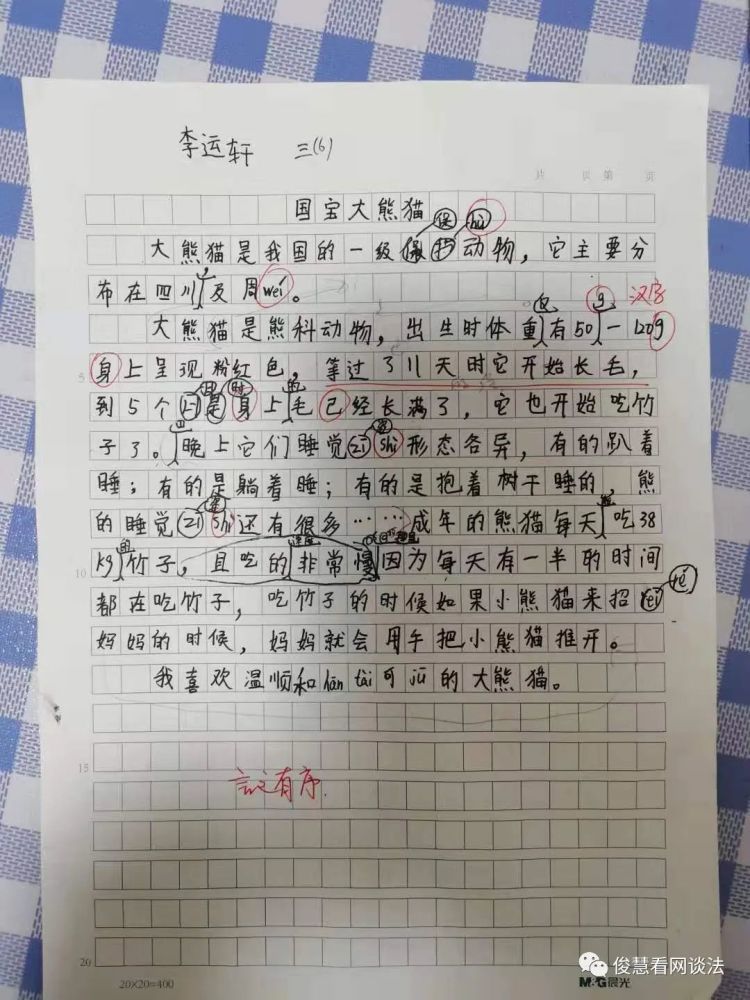 李运轩 三(6)
片 页 第 页
国宝大熊猫
保 hù
大熊猫是我国的一级动物，它主要分
布在四川及周wéi。
g 汉字
大熊猫是熊科动物，出生时体重有50一120g
身上呈现粉红色，等过了11天时它开始长毛，
5
到5个月是身上毛已经长满了，它也开始吃竹
子了。晚上它们睡觉zī shì形态各异，有的趴着
睡；有的是躺着睡；有的是抱着树干睡的，熊
的睡觉zī shì还有很多……成年的熊猫每天吃38
10
kg竹子，且吃的非常慢因为每天有一半的时间
都在吃竹子，吃竹子的时候如果小熊猫来招
妈妈的时候，妈妈就会用手把小熊猫推开。
我喜欢温顺和hān tài可jū的大熊猫。
15
言之有序
20
20×20=400
M&G晨光
俊慧看网谈法